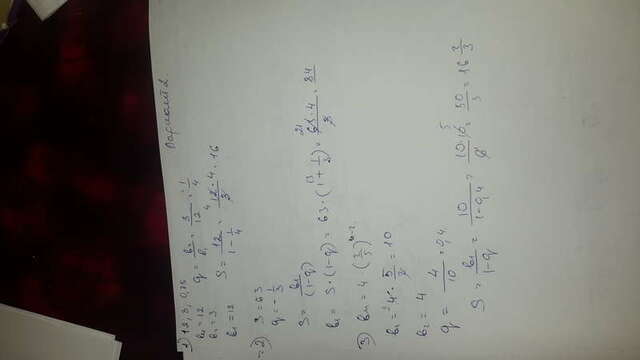 Вариант 2.
1) 12, 3, 0,75
b₁ = 12
b₂ = 3
q = b₂/b₁ = 3/12 = 1/4
b₁ = 12
S = 12/(1 - 1/4) = 12·4/3 = 16
2) S = 63
q = -1/3
S = b₁/(1-q)
b₁ = S·(1-q) = 63·(1+1/3) = 63·4/3 = 84
3) bₙ = 4 (2/5)ⁿ⁻²
b₁ = 4·5/2 = 10
b₂ = 4
q = 4/10 = 0,4
S = b₁/(1-q) = 10/(1-0,4) = 10·10/6 = 50/3 = 16 2/3